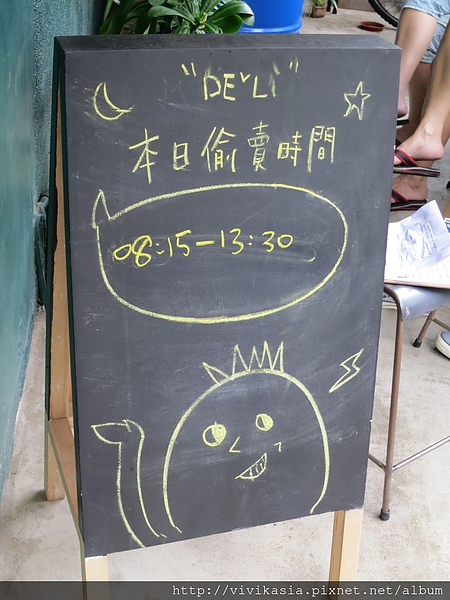 "DEˇLI"
本日偷賣時間
08:15-13:30
http://vivikasia.pixnet.net/album